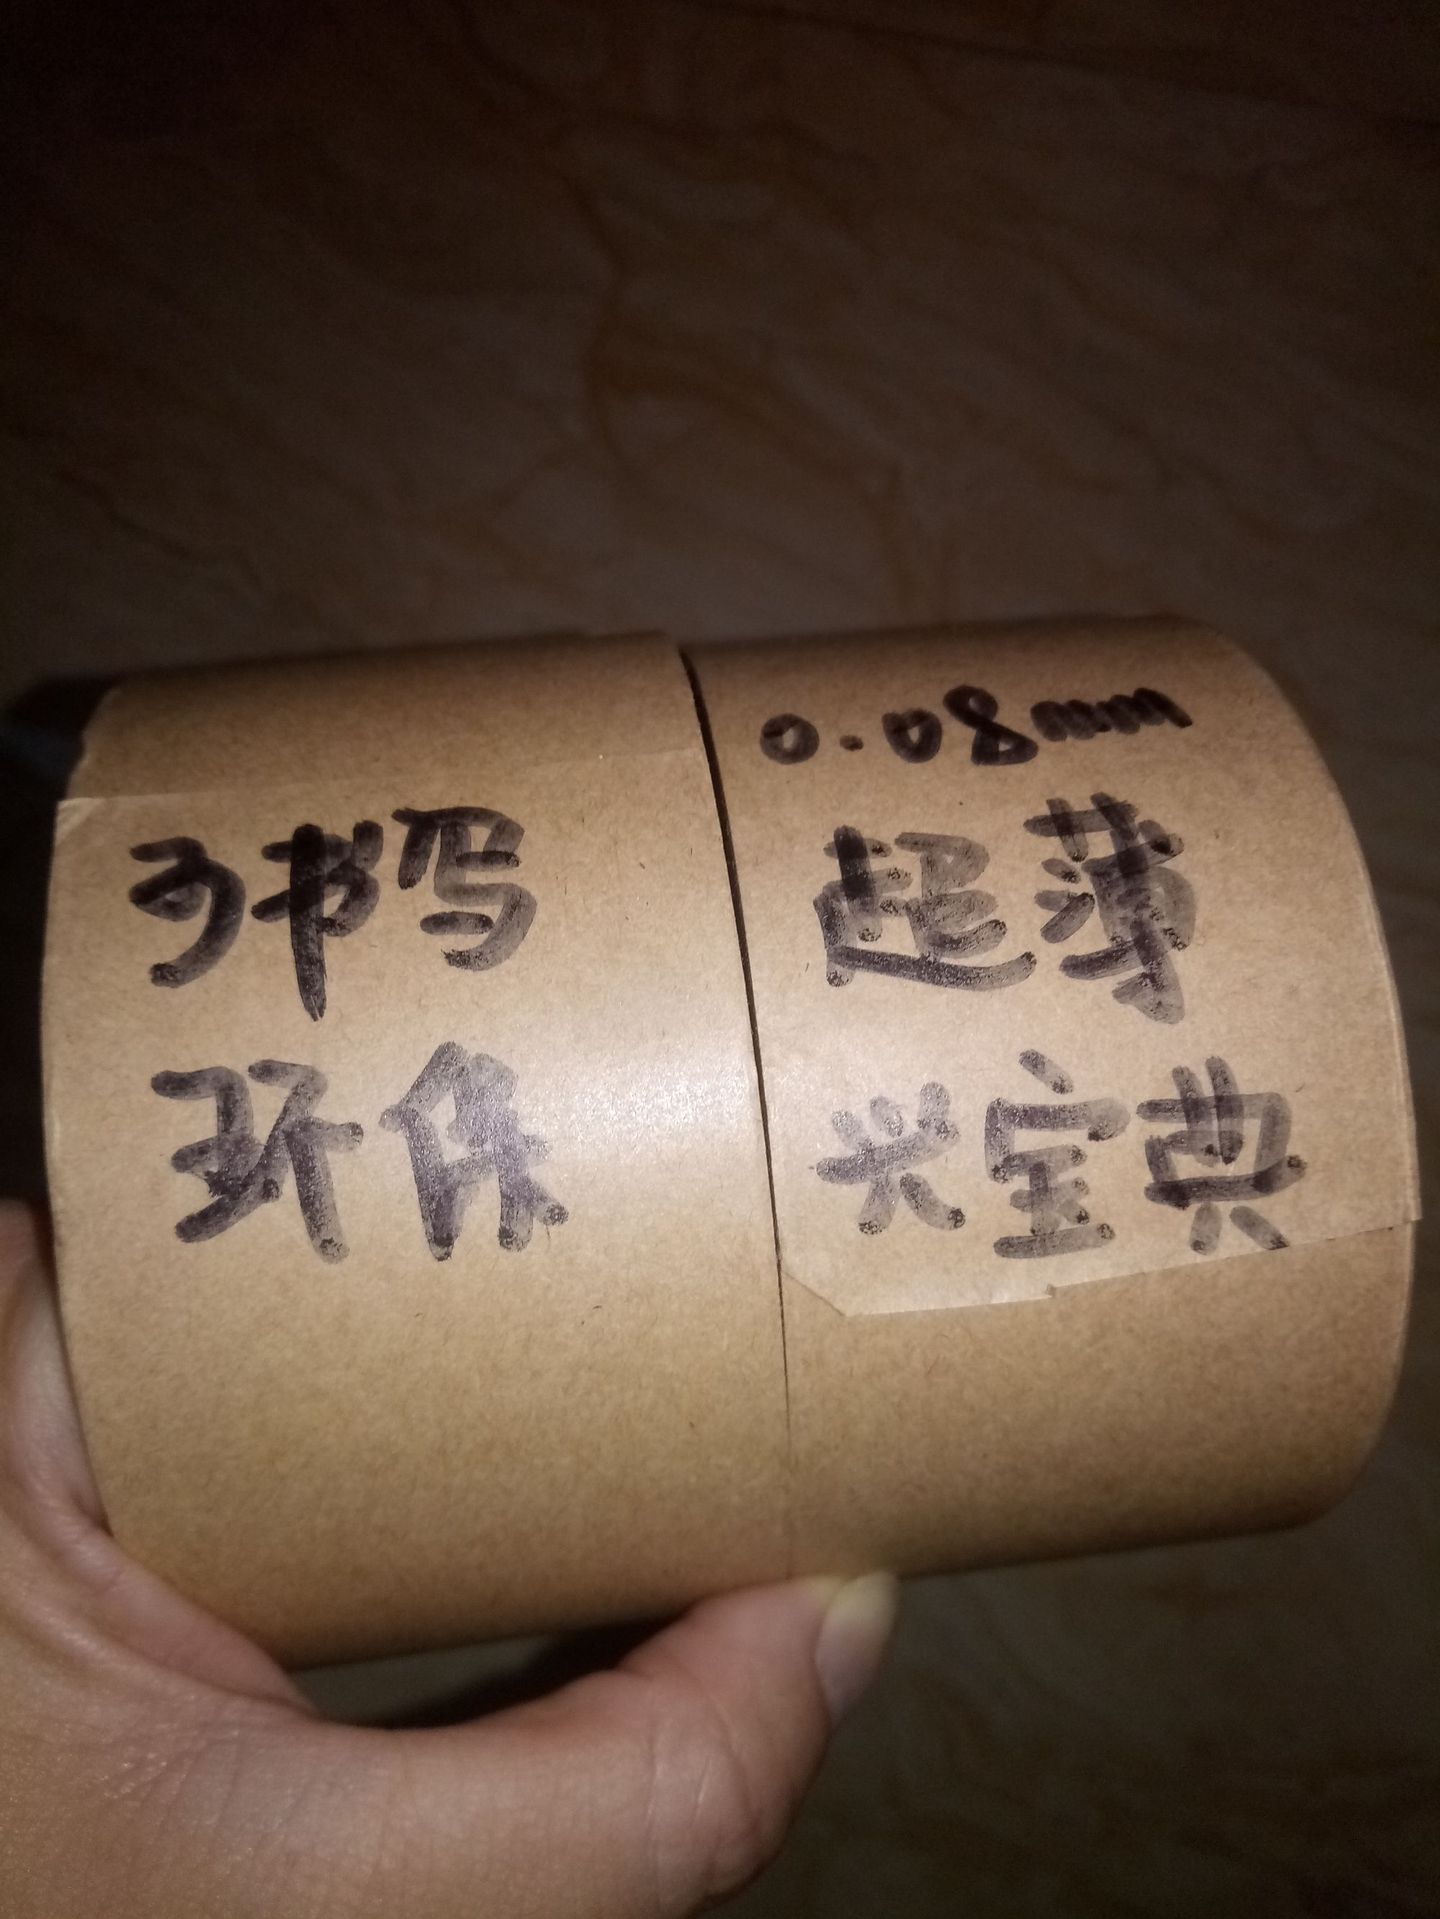 可书写
环保
0.08mm
超薄
兴宝典